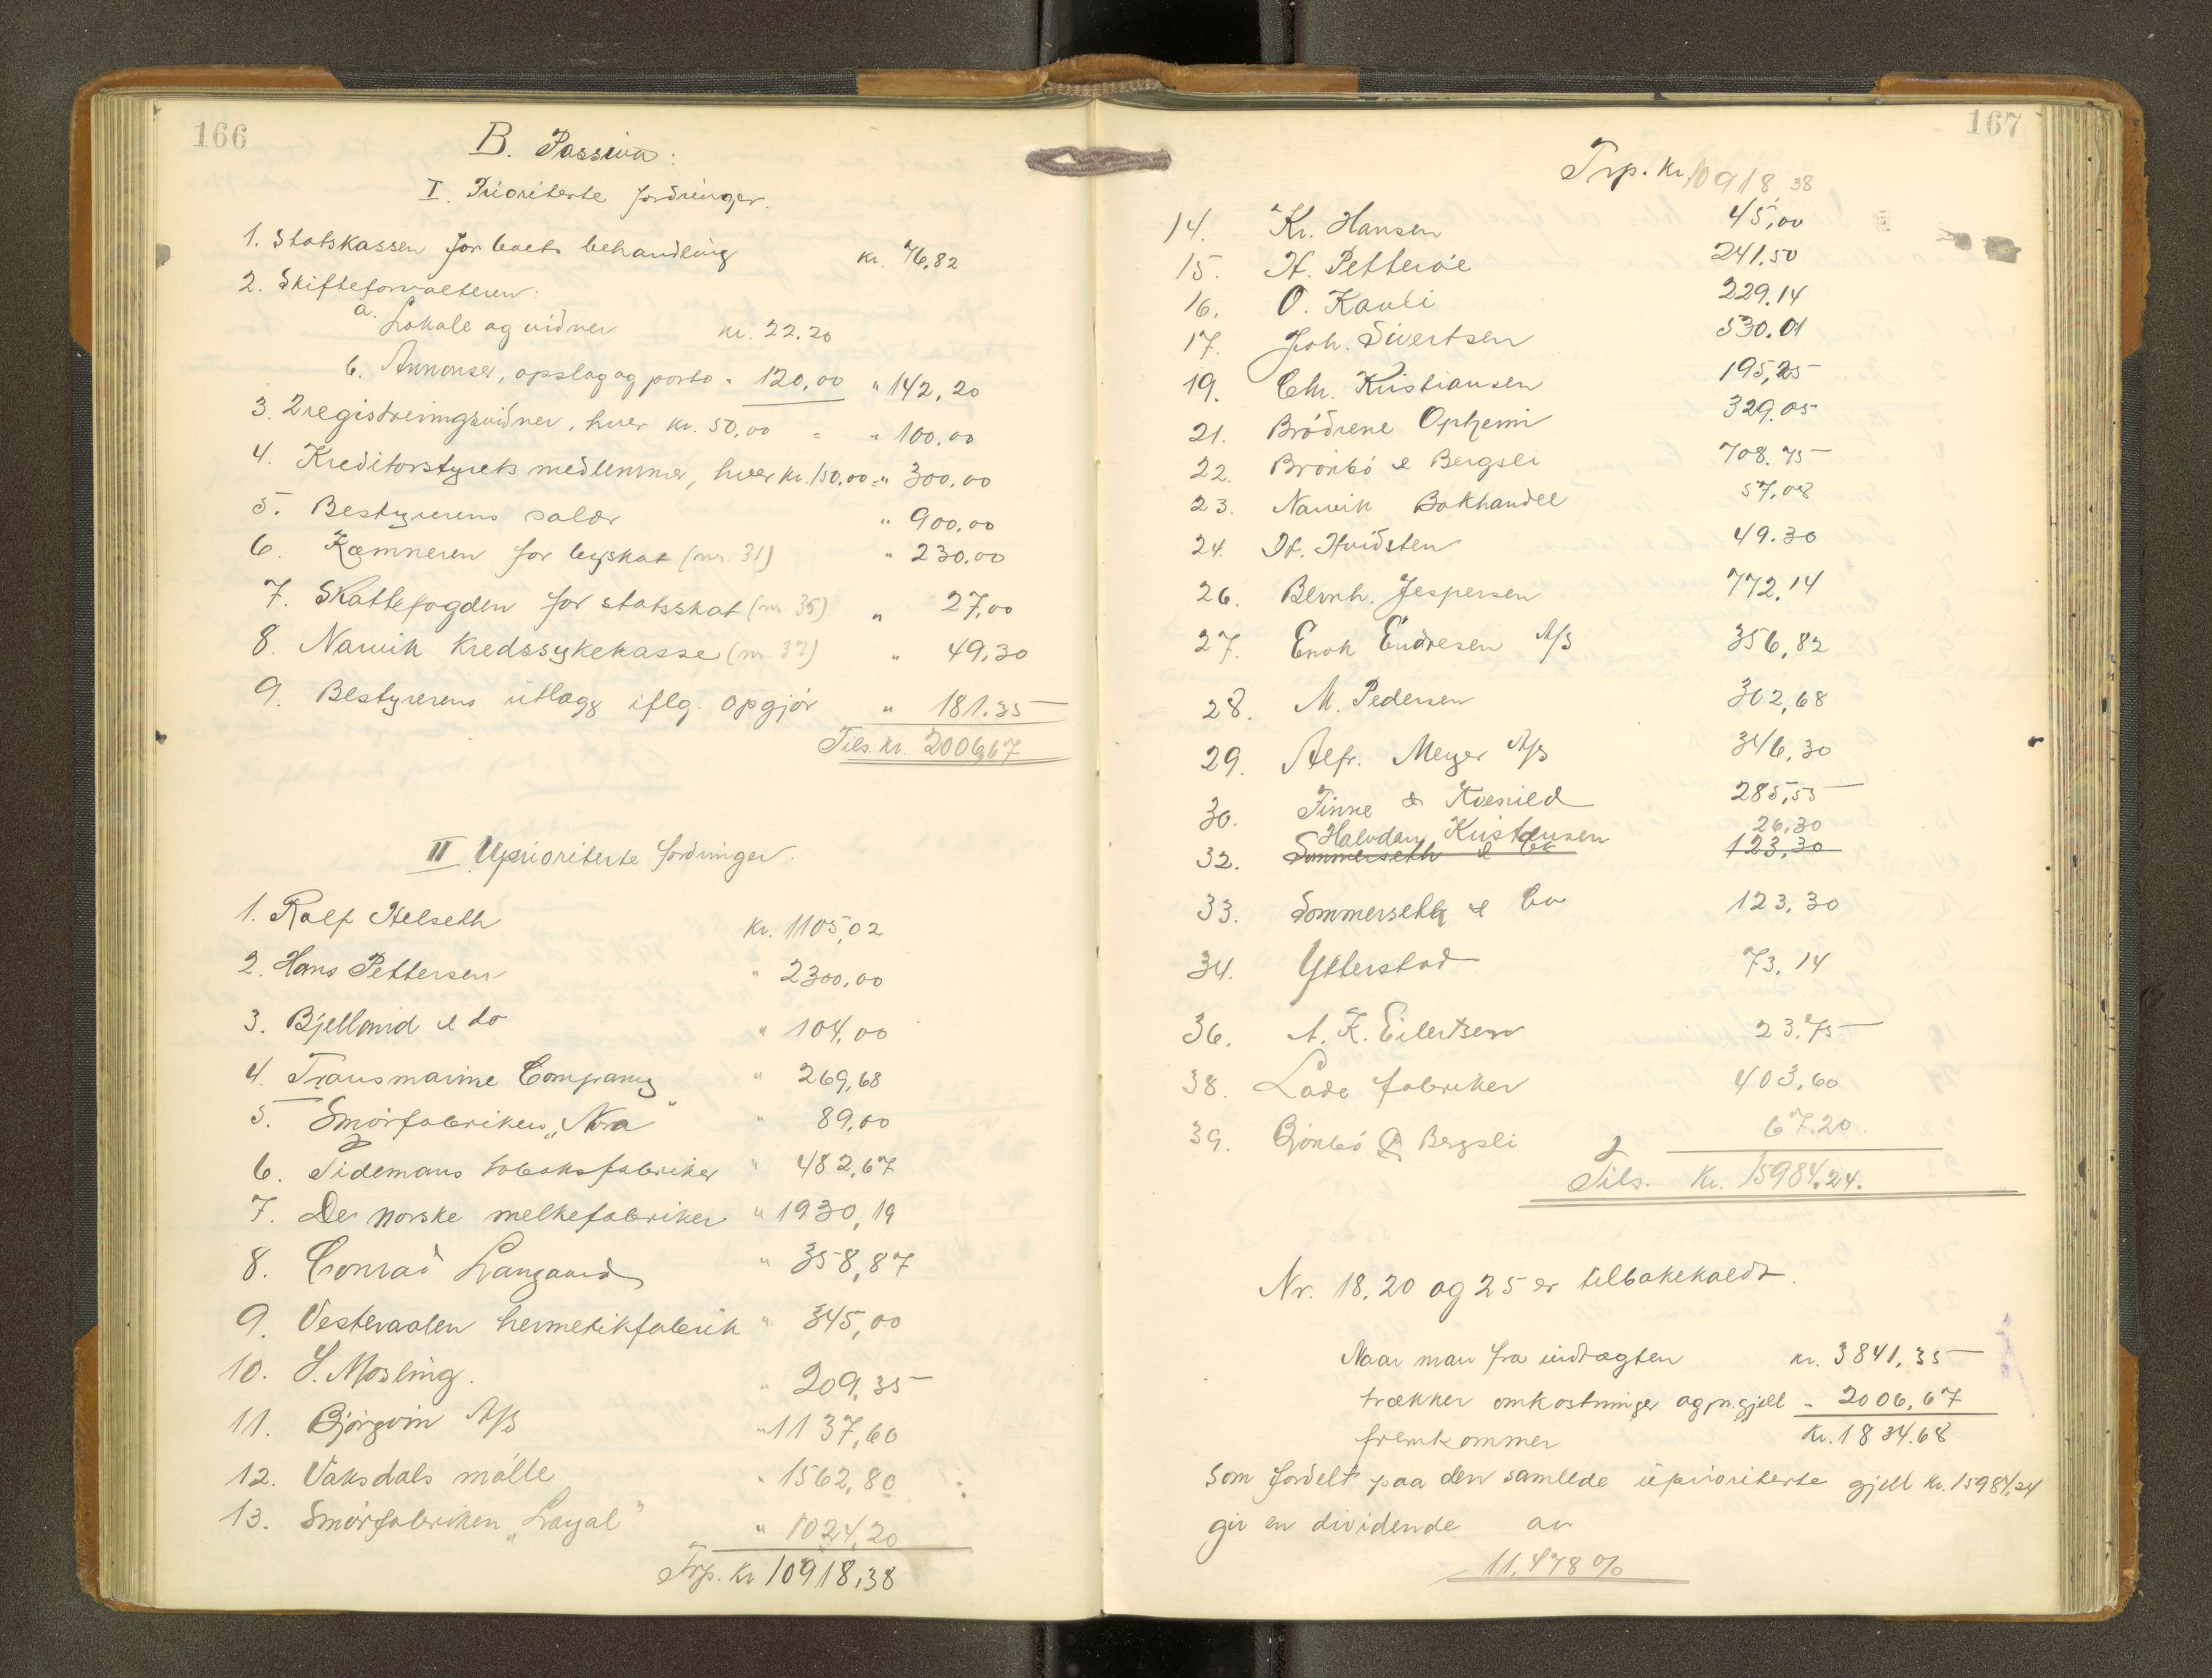 166
B. Passiva:
I. Prioriterte fordringer.
1. Statskassen for boets behandling kr. 76,82
2. Skifteforvalteren:
a. Lokale og vidner kr. 22.20
b. Annonser, opslag og porto " 120,00 " 142,20
3. 2 registreringsvidner, hver kr. 50,00 = " 100.00
4. Kreditorstyrets medlemmer, hver kr. 150,00 = " 300,00
5. Bestyrerens salær " 900,00
6. Kæmneren for byskat (nr. 31) " 230,00
7. Skattefogden for statsskat (nr. 35) " 27,00
8. Narvik Kredssykekasse (nr. 37) " 49,30
9. Bestyrerens utlagg iflg. opgjør " 181.35
Tils. kr. 2006,67
II Uprioriterte fordringer.
1. Rolf Helseth kr. 1105,02
2. Hans Pettersen " 2300,00
3. Bjelland & Co " 104,00
4. Transmarine Company " 269,68
5. Smörfabriken "Nora" " 89,00
6. Tidemans tobaksfabriker " 482,67
7. De norske melkefabriker " 1930,19
8. Conrad Langaard " 358,87
9. Vesteraalen hermetikfabrik " 345,00
10. S. Mosling. " 209,35
11. Björgvin A/S " 1137,60
12. Vaksdals mölle " 1562,80
13. Smörfabriken "Loyal" " 1024,20
Trp. kr 10918,38
167
Trp. kr. 10918,38
14. Kr. Hansen 45,00
15. H. Petteröe 241.50
16. O. Kavli 229.14
17. Joh. Sivertsen 530.01
19. Chr. Kristiansen 195,25
21. Brödrene Opheim 329,05
22. Brönbö & Bergsli 708.75
23. Narvik Bokhandel 57,08
24. H. Hvidsten 49.30
26. Bernh. Jespersen 772.14
27. Enok Endresen A/S 356,82
28. M. Pedersen 302,68
29. Alfr. Meyer A/S 346,30
30. Finne & Kvenild 285,55
Halvdan Kristensen 26,30
32. Sommerseth & Co 123,30
33. Sommerseth & Co 123,30
34. Ytterstad 73,14
36. A. K. Eilertsen 23.75
38. Lade fabriker 403,60
39. Brönbö & Bergsli 67.20.
Tils. Kr. 15984.24.
Nr. 18, 20 og 25 er tilbakekaldt.
Naar man fra indtægten kr. 3841,35
trækker omkostninger og pr. gjell " 2006,67
fremkommer Kr. 1834.68
som fordelt paa den samlede uprioriterte gjell kr. 15984,24
gir en dividende av
11,478 %